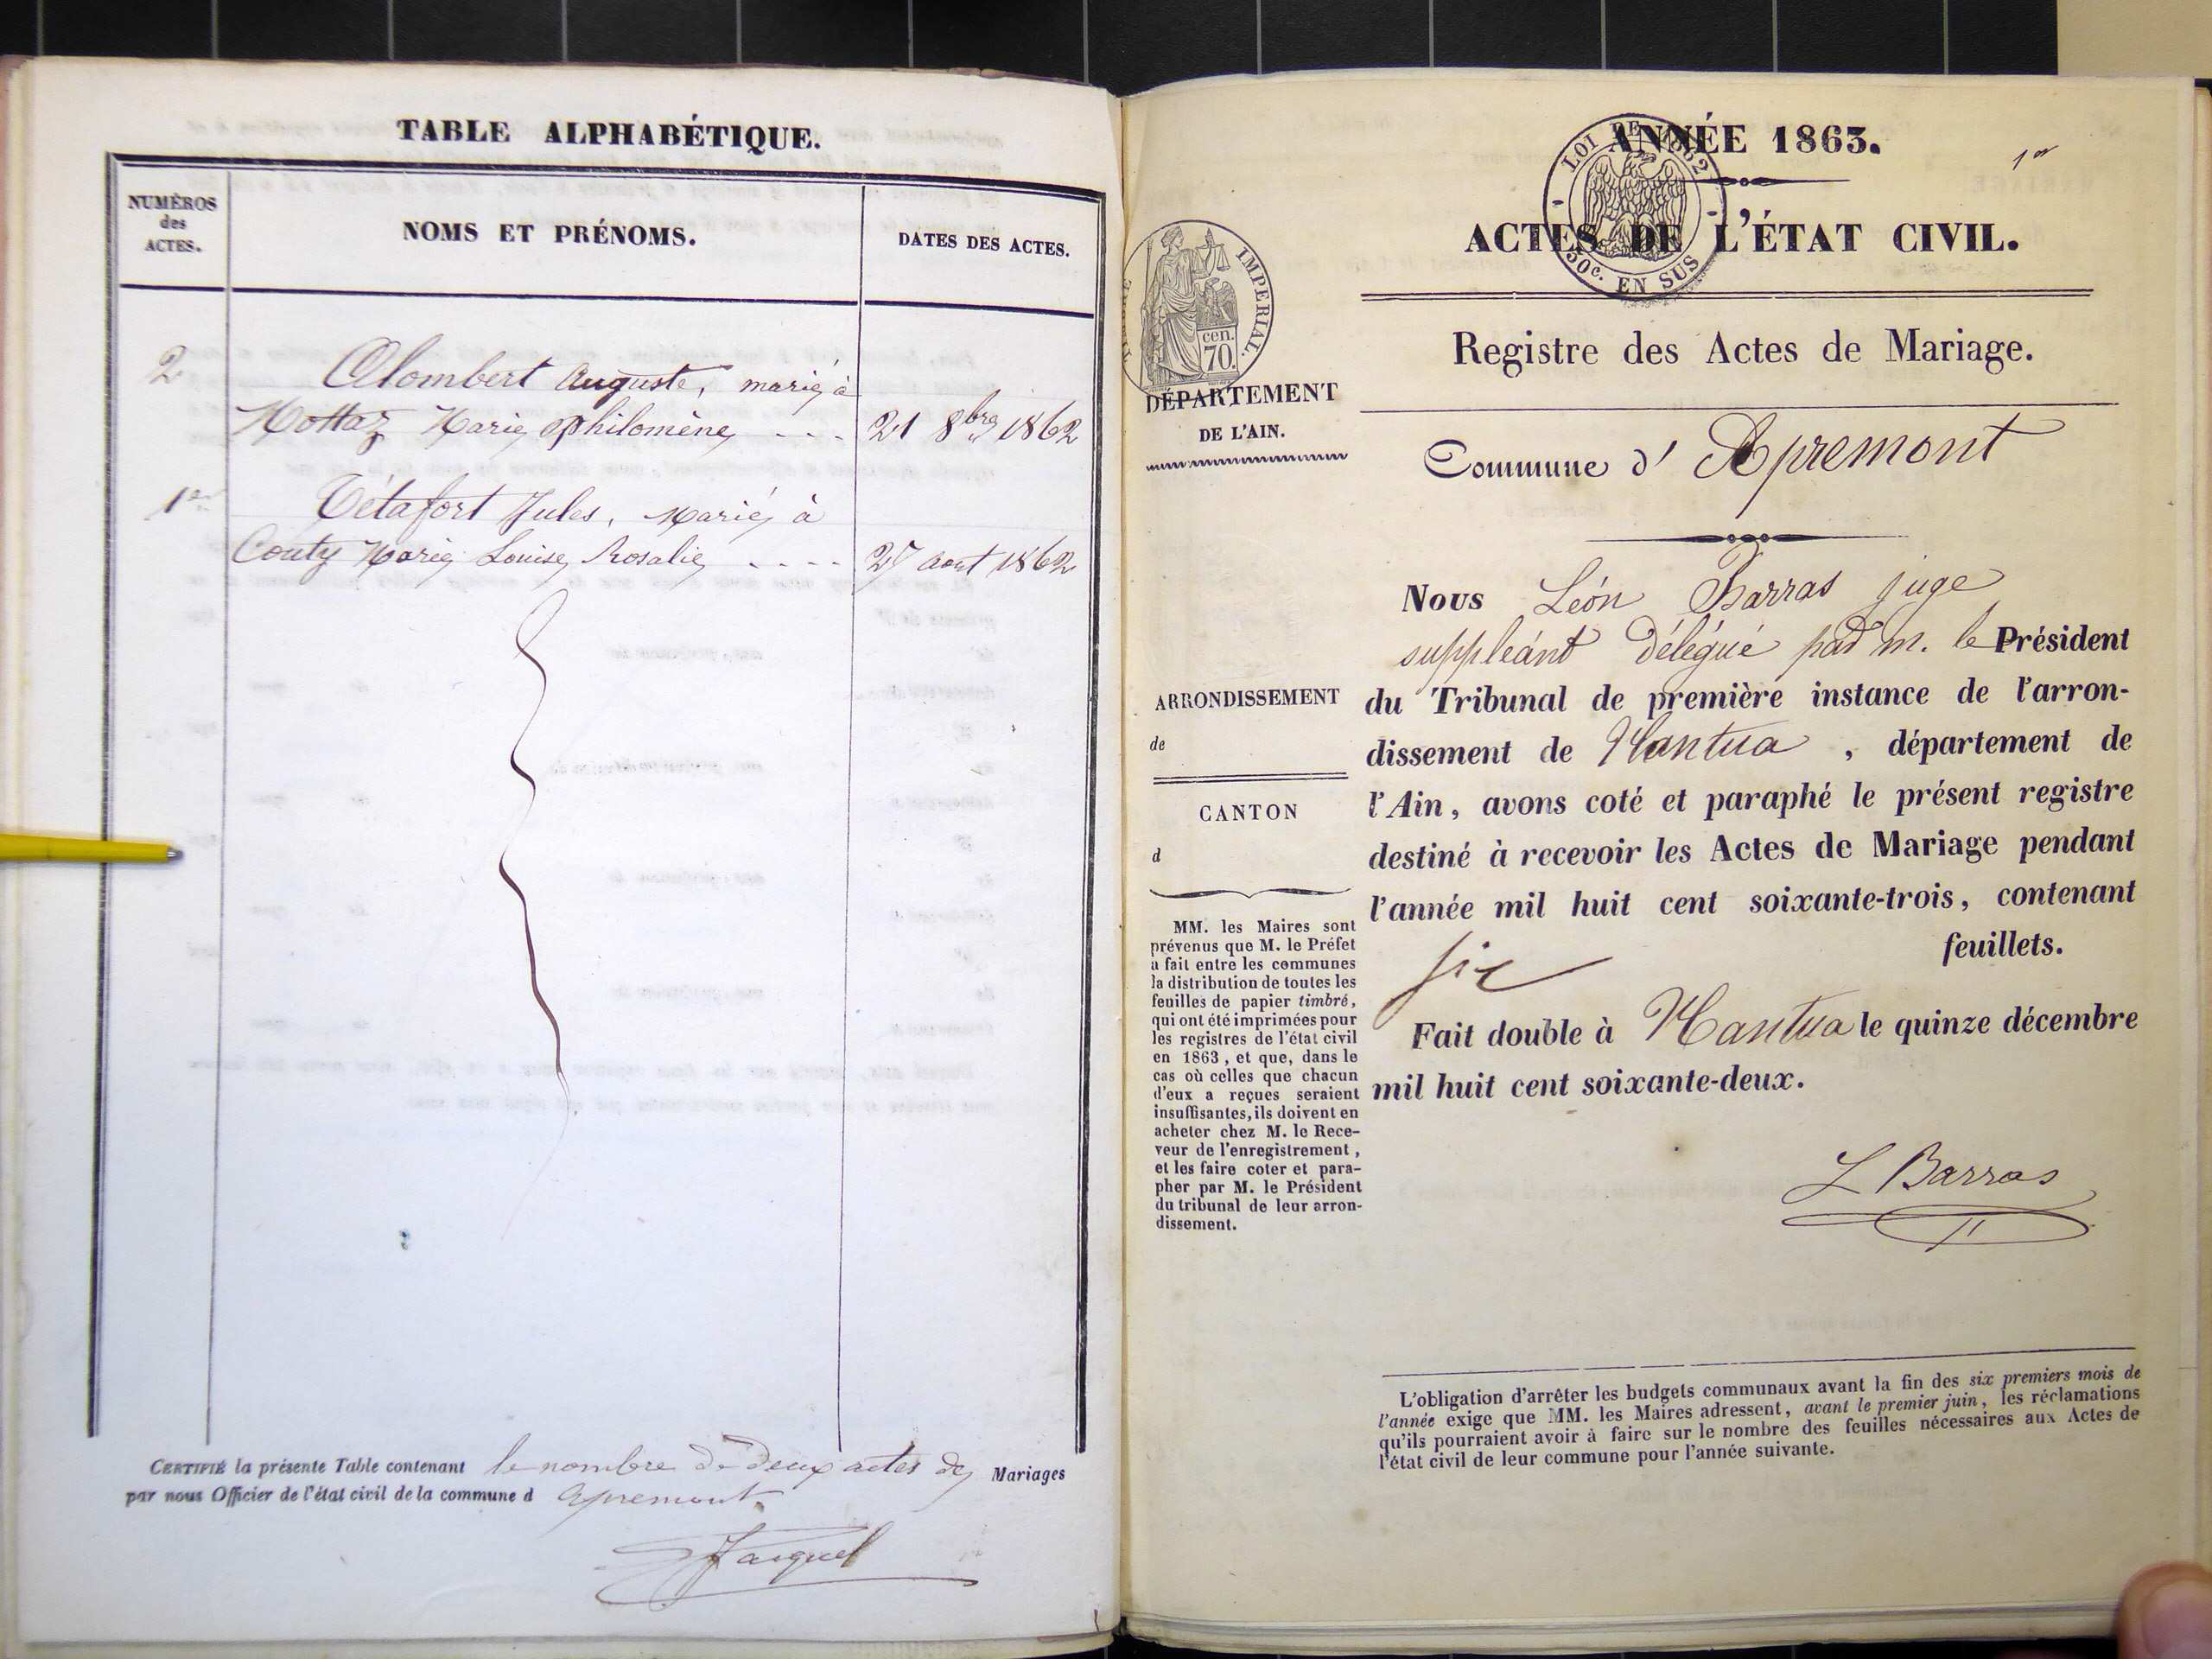 TABLE ALPHABÉTIQUE.
NUMÉROS
des
ACTES.
NOMS ET PRÉNOMS.
DATES DES ACTES.
2
Alombert Auguste, marié à
Mottaz Marie philomène, - - -
21 8bre 1862
1er
Tétafort Jules, Marié à
Couty Marie Louise Rosalie - - - -
27 Aout 1862
CERTIFIÉ la présente Table contenant le nombre de deux actes de Mariages
par nous Officier de l'état civil de la commune d apremont
1er
ANNÉE 1863.
LOI DE 1862
50c. EN SUS
ACTES DE L'ÉTAT CIVIL.
TIMBRE IMPERIAL.
cen.
70.
Registre des Actes de Mariage.
DÉPARTEMENT
DE L'AIN.
Commune d' Apremont
Nous Léon Barras juge
suppléant délégué par m. le Président
du Tribunal de première instance de l'arron-
dissement de Nantua , département de
l'Ain, avons coté et paraphé le présent registre
destiné à recevoir les Actes de Mariage pendant
l'année mil huit cent soixante-trois, contenant
six feuillets.
Fait double à Nantua le quinze décembre
mil huit cent soixante-deux.
L Barras
ARRONDISSEMENT
de
CANTON
d
MM. les Maires sont
prévenus que M. le Préfet
a fait entre les communes
la distribution de toutes les
feuilles de papier timbré,
qui ont été imprimées pour
les registres de l'état civil
en 1863, et que, dans le
cas où celles que chacun
d'eux a reçues seraient
insuffisantes, ils doivent en
acheter chez M. le Rece-
veur de l'enregistrement,
et les faire coter et para-
pher par M. le Président
du tribunal de leur arron-
dissement.
L'obligation d'arrêter les budgets communaux avant la fin des six premiers mois de
l'année exige que MM. les Maires adressent, avant le premier juin, les réclamations
qu'ils pourraient avoir à faire sur le nombre des feuilles nécessaires aux Actes de
l'état civil de leur commune pour l'année suivante.